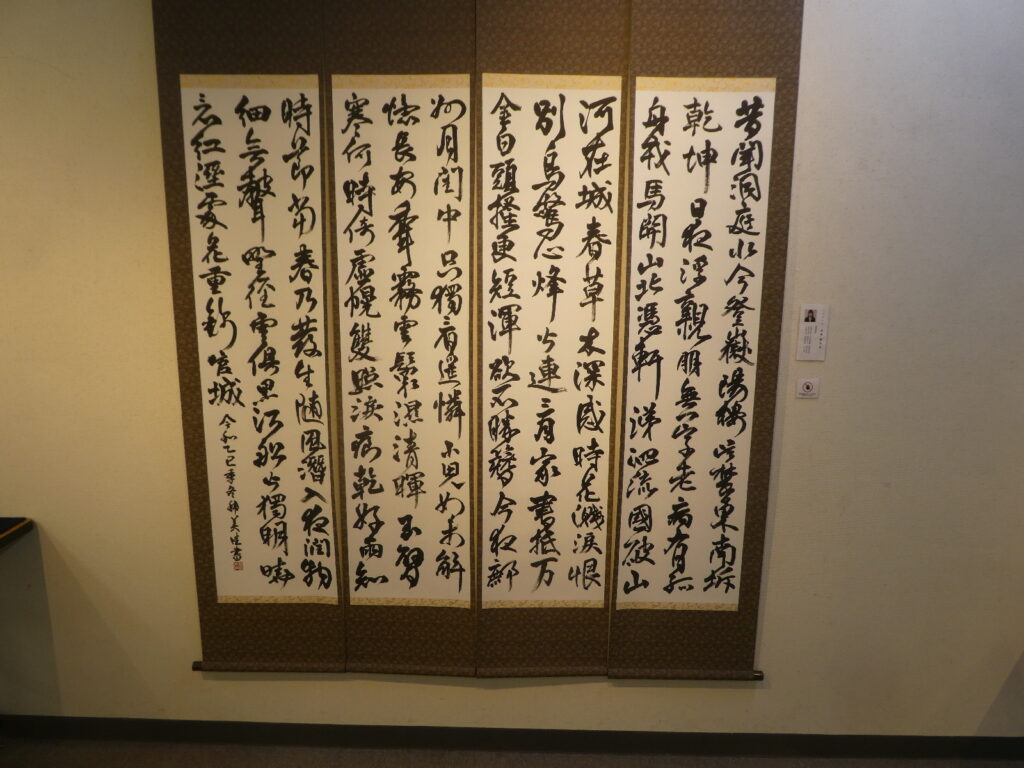 昔聞洞庭水今登嶽陽樓呉楚東南坼
乾坤日夜浮親朋無一字老病有孤
舟戎馬関山北憑軒涕泗流國破山
河在城春草木深感時花濺涙恨
別鳥驚心烽火連三月家書抵万
金白頭掻更短渾欲不勝簪今夜鄜
州月閨中只獨看遥憐小児女未解
憶長安香霧雲鬟濕清暉玉臂
寒何時倚虚幌雙照涙痕乾好雨知
時節當春乃發生随風潜入夜潤物
細無聲野徑雲倶黒江船火獨明暁
看紅溼處花重錦官城
令和乙巳季冬